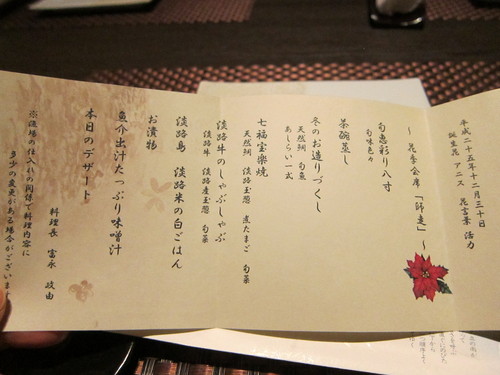 平成二十五年十二月三十日
誕生花 アニス 花言葉 活力
～ 花季会席「師走」 ～
旬恵彩り八寸
旬味色々
茶碗蒸し
冬のお造りづくし
天然鯛 旬魚
あしらい一式
七福宝楽焼
天然鯛 淡路玉葱 煮たまご 旬菜
淡路牛のしゃぶしゃぶ
淡路牛 淡路産玉葱 旬菜
淡路島 淡路米の白ごはん
お漬物
魚介出汁たっぷり味噌汁
本日のデザート
料理長 富永 政由
※漁場の仕入れの関係で料理内容に
多少の変更がある場合がございます